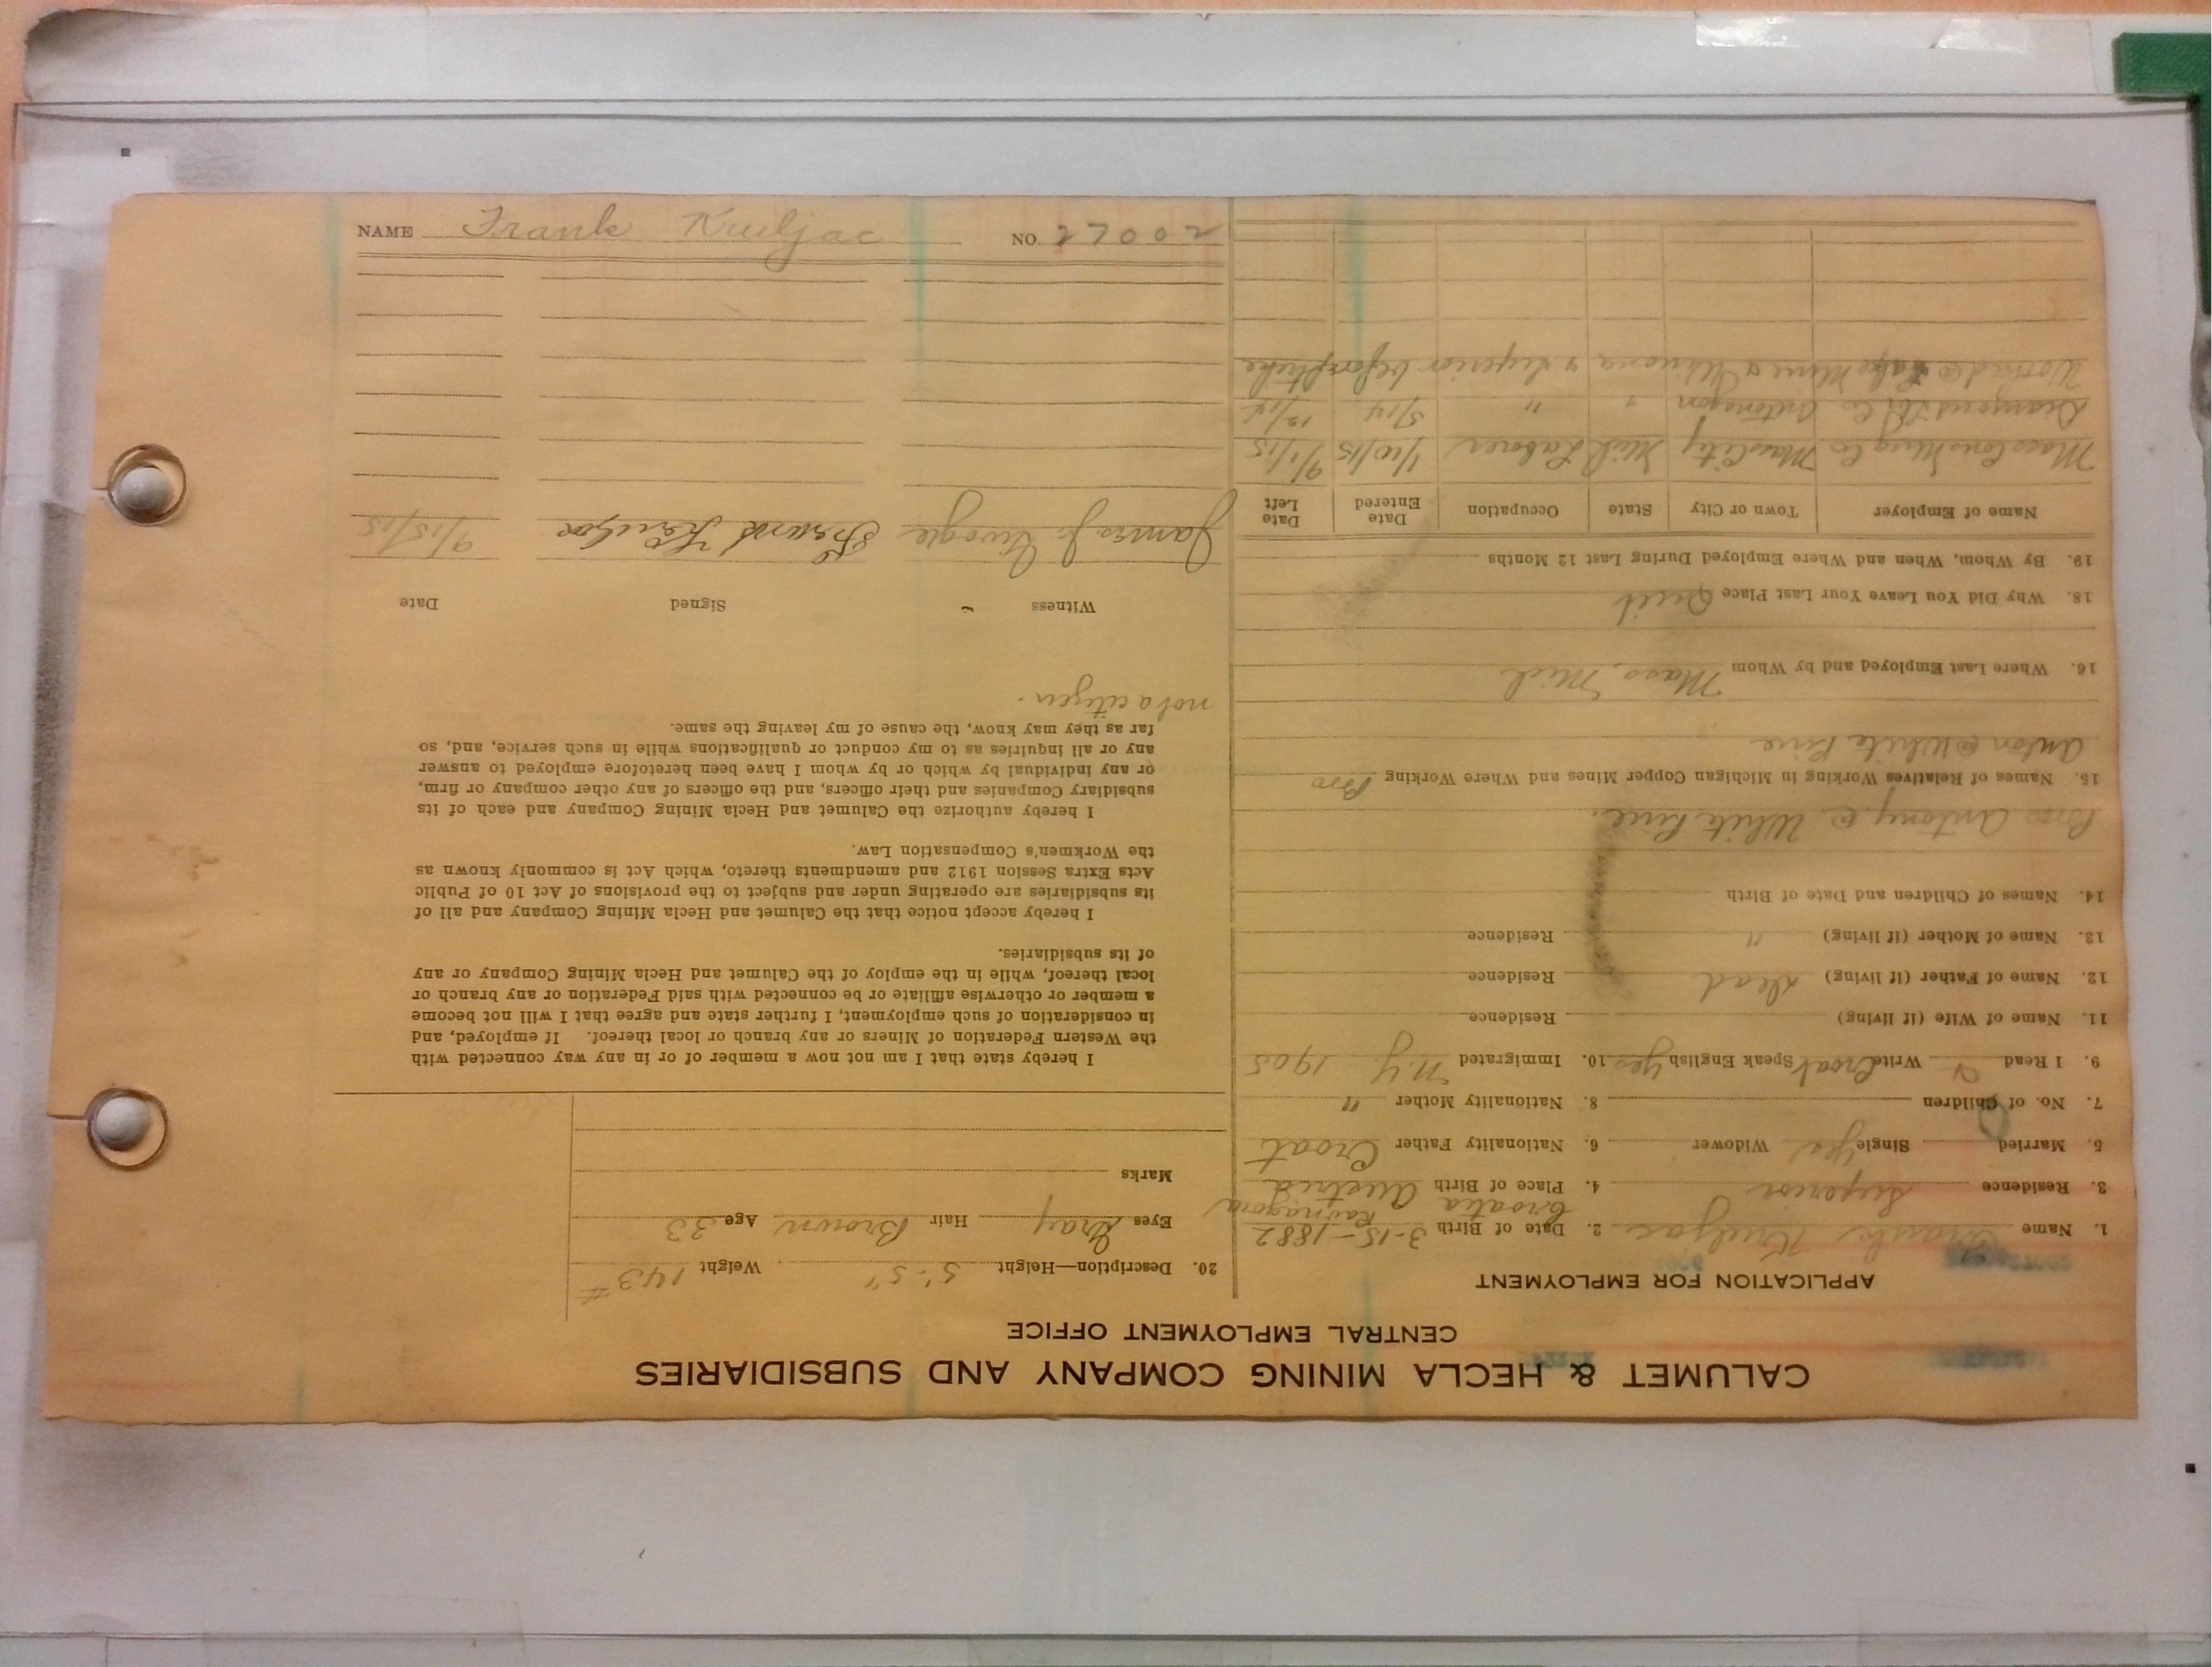 CALUMET & HECLA MINING COMPANY AND SUBSIDIARIES
CENTRAL EMPLOYMENT OFFICE
APPLICATION FOR EMPLOYMENT
1. Name Frank Kruljac 2. Date of Birth 3-15-1882
Croatia
3. Residence Superior 4. Place of Birth Austria
5. Married Single Yes Widower 6. Nationality Father Croat
7. No. of Children 8. Nationality Mother "
9. I Read Write Croat Speak English Yes 10. Immigrated N.Y 1905
11. Name of Wife (if living) Residence
12. Name of Father (if living) Dead Residence
13. Name of Mother (if living) " Residence
14. Names of Children and Date of Birth
Bro Antony @ White Pine.
15. Names of Relatives Working in Michigan Copper Mines and Where Working Bro
Anton @ White Pine
16. Where Last Employed and by Whom Mass, Mich
18. Why Did You Leave Your Last Place Quit
19. By Whom, When and Where Employed During Last 12 Months
Name of Employer Town or City State Occupation Date Entered Date Left
Mass Cons Mng Co Mass City Mich Laborer 1/10/15 9/1/15
Diamond Co Ontonagon " " 5/14 12/14
Worked @ Lake Mine & Winona & Superior before strike
20. Description—Height 5'-5" Weight 143#
Eyes Gray Hair Brown Age 33
Marks
I hereby state that I am not now a member of or in any way connected with
the Western Federation of Miners or any branch or local thereof. If employed, and
in consideration of such employment, I further state and agree that I will not become
a member or otherwise affiliate or be connected with said Federation or any branch or
local thereof, while in the employ of the Calumet and Hecla Mining Company or any
of its subsidiaries.
I hereby accept notice that the Calumet and Hecla Mining Company and all of
its subsidiaries are operating under and subject to the provisions of Act 10 of Public
Acts Extra Session 1912 and amendments thereto, which Act is commonly known as
the Workmen's Compensation Law.
I hereby authorize the Calumet and Hecla Mining Company and each of its
subsidiary Companies and their officers, and the officers of any other company or firm,
or any individual by which or by whom I have been heretofore employed to answer
any or all inquiries as to my conduct or qualifications while in such service, and, so
far as they may know, the cause of my leaving the same.
not a citizen.
Witness Signed Date
James J. Frank 9/15/15
NAME Frank Kruljac NO. 27002